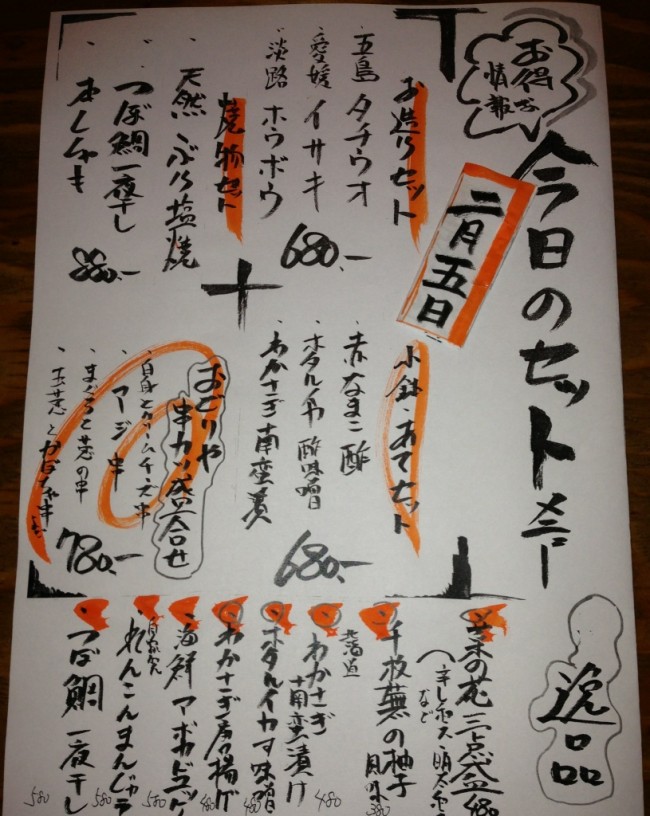 お得な
情報
今日のセットメニー
二月五日
お造りセット
五島 タチウオ
愛媛 イサキ
淡路 ホウボウ
680.-
焼物セット
・天然ぶり塩焼
・つぼ鯛一夜干し
・本ししゃも
880.-
小鉢・あてセット
・赤なまこ酢
・ホタルイカ酢味噌
・わかさぎ南蛮漬
680.-
おどりや
串カツ盛合せ
・白身とクリームチーズ串
・マージ串
・まぐろと葱の串
・玉葱とかぼちゃ串
780.-
逸品
菜の花三点盛
辛しポン酢・明太
など
480
千枚蕪の柚子
風味
380
北海道
わかさぎ
南蛮漬け
480
ホタルイカす味噌
480
わかさぎ唐揚げ
480
海鮮アボカド
580
れんこんまんじゅう
580
つぼ鯛一夜干し
580